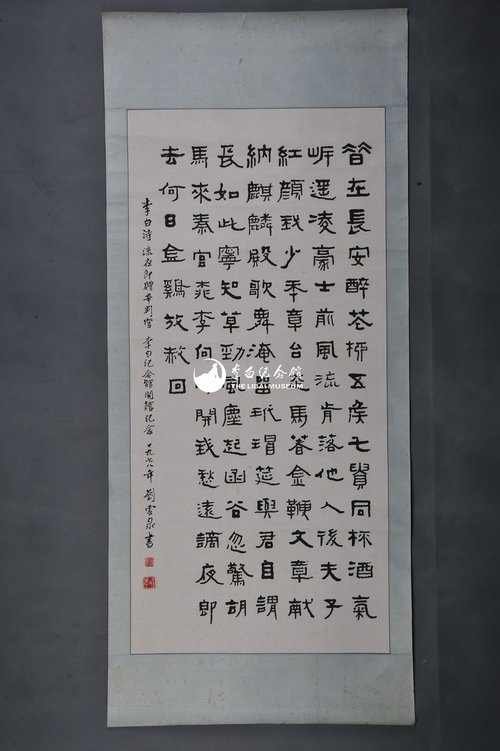 昔在長安醉花柳五侯七貴同杯酒氣
岸遥凌豪士前風流肯落他人後夫子
紅顏我少年章台走馬著金鞭文章献
納麒麟殿歌舞淹留玳瑁筵與君自謂
長如此寧知草動風塵起函谷忽驚胡
馬來秦宫桃李向明開我愁遠謫夜郎
去何日金鷄放赦回
李白诗 流夜郎贈辛判官 李白纪念館開館纪念 一九七八年 劉雲泉書
李白纪念館
THE LIBAI MUSEUM